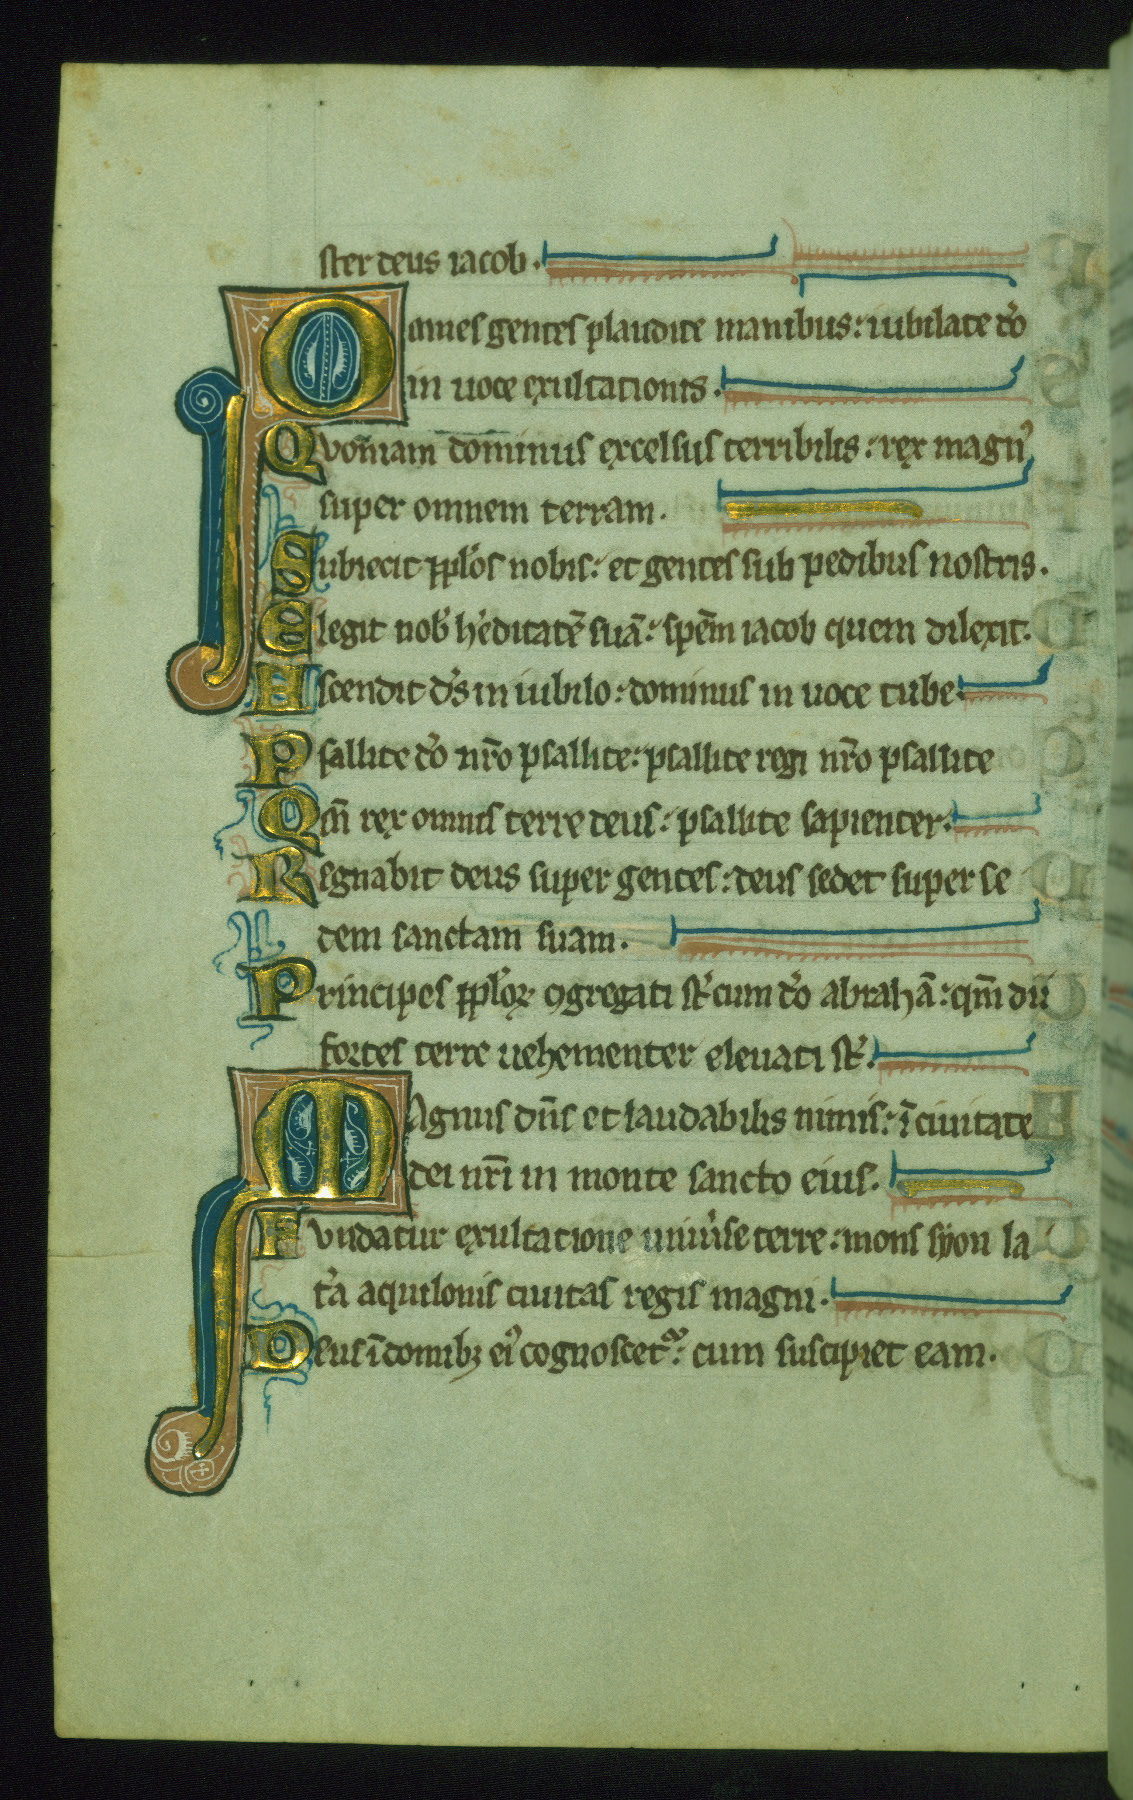 ster deus iacob.
Omnes gentes plaudite manibus: iubilate do
in uoce exultationis.
Quoniam dominus excelsus terribilis: rex magn᾽
super omnem terram.
Subiecit pplos nobis: et gentes sub pedibus nostris.
Elegit nob᾽ hereditatē suā: spēm iacob quem dilexit.
Ascendit ds in iubilo: dominus in uoce tube.
Psallite do nr̄o psallite: psallite regi nr̄o psallite
Qm̄ rex omnis terre deus: psallite sapienter.
Regnabit deus super gentes: deus sedet super se
dem sanctam suam.
Principes pploꝝ ꝯgregati st᾽ cum do abrahā: qm̄ dii
fortes terre uehementer eleuati st᾽.
Magnus dn̄s et laudabilis nimis: ī ciuitate
dei nr̄i in monte sancto eius.
Fundatur exultatione uniu᾽se terre: mons syon la
t᾽a aquilonis ciuitas regis magni.
Deus ī domibꝫ ei᾽ cognoscet᾽: cum suscipiet eam.